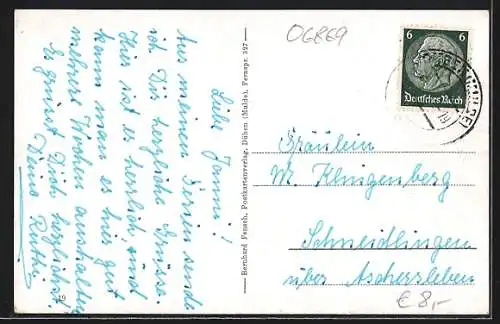 Liebe Janni!
Aus meinen Ferien sende
ich Dir herzliche Grüsse.
Hier ist es herrlich, und
kann man es hier gut
mehrere Wochen aushalten.
Es grüsst Dich herzlichst
Deine Ruth.
19
Bernhard Fensch, Postkartenverlag, Düben (Mulde), Fernspr. 397
06869
6 6
Deutsches Reich
Fräulein
M. Klingenberg
Schneidlingen
über Aschersleben
€ 8,-